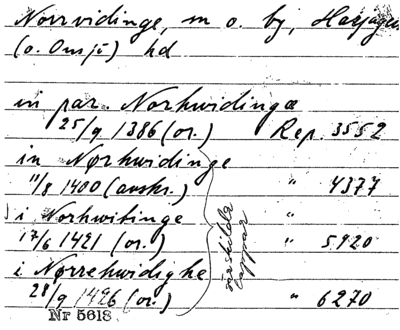 Norrvidinge, sn o. by, Harjagers
(o. Onsjö) hd
in par. Norhwidingæ
25/9 1386 (or.) Rep. 3552
in Nørhwidinge
11/8 1400 (avskr.) " 4377
i Norhwitinge "
17/6 1421 (or.) " 5920
i Nørrehwidighe
28/9 1426 (or.) " 6270
särskilda
lappar
Nr 5618